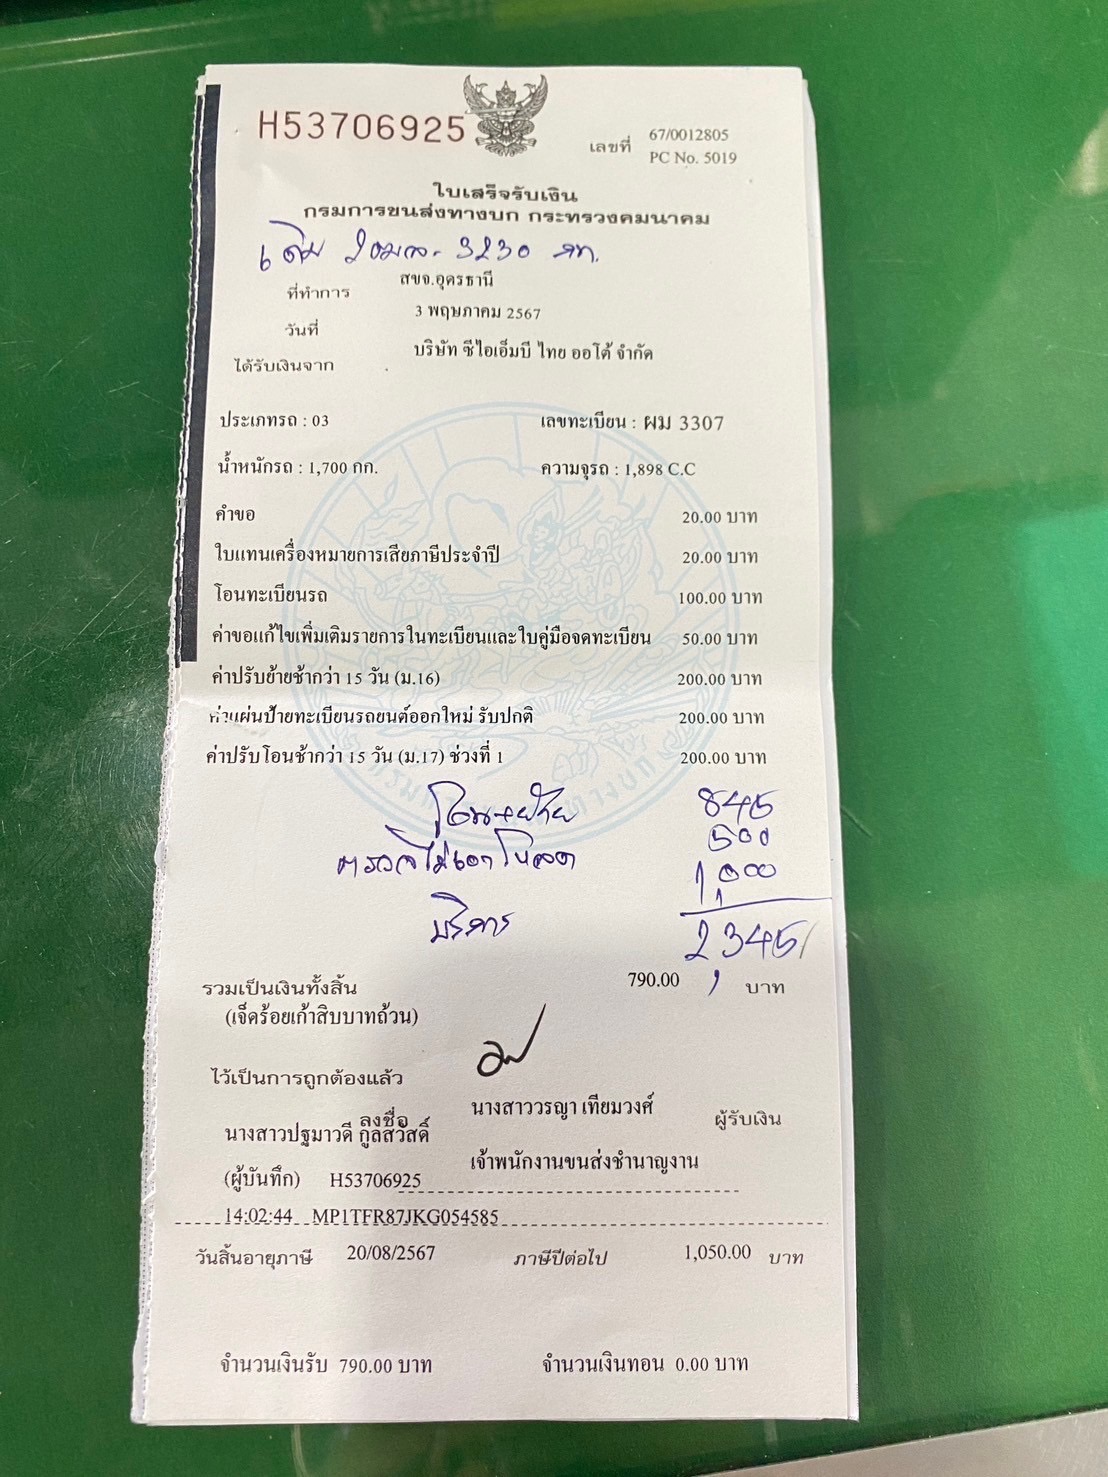 H53706925
เลขที่ 67/0012805
PC No. 5019
ใบเสร็จรับเงิน
กรมการขนส่งทางบก กระทรวงคมนาคม
เดิม 3230
ที่ทำการ สขจ.อุดรธานี
วันที่ 3 พฤษภาคม 2567
ได้รับเงินจาก บริษัท ซีไอเอ็มบี ไทย ออโต้ จำกัด
ประเภทรถ : 03 เลขทะเบียน : ผม 3307
น้ำหนักรถ : 1,700 กก. ความจุรถ : 1,898 C.C
คำขอ 20.00 บาท
ใบแทนเครื่องหมายการเสียภาษีประจำปี 20.00 บาท
โอนทะเบียนรถ 100.00 บาท
ค่าขอแก้ไขเพิ่มเติมรายการในทะเบียนและใบคู่มือจดทะเบียน 50.00 บาท
ค่าปรับย้ายช้ากว่า 15 วัน (ม.16) 200.00 บาท
ค่าแผ่นป้ายทะเบียนรถยนต์ออกใหม่ รับปกติ 200.00 บาท
ค่าปรับโอนช้ากว่า 15 วัน (ม.17) ช่วงที่ 1 200.00 บาท
โอน+ย้าย 845
500
1,000
บริการ
2,345
รวมเป็นเงินทั้งสิ้น 790.00 บาท
(เจ็ดร้อยเก้าสิบบาทถ้วน)
ไว้เป็นการถูกต้องแล้ว
ลงชื่อ นางสาววรญา เทียมวงศ์ ผู้รับเงิน
นางสาวปฐมาวดี กูลสวัสดิ์
เจ้าพนักงานขนส่งชำนาญงาน
(ผู้บันทึก) H53706925
14:02:44 MP1TFR87JKG054585
วันสิ้นอายุภาษี 20/08/2567 ภาษีปีต่อไป 1,050.00 บาท
จำนวนเงินรับ 790.00 บาท จำนวนเงินทอน 0.00 บาท